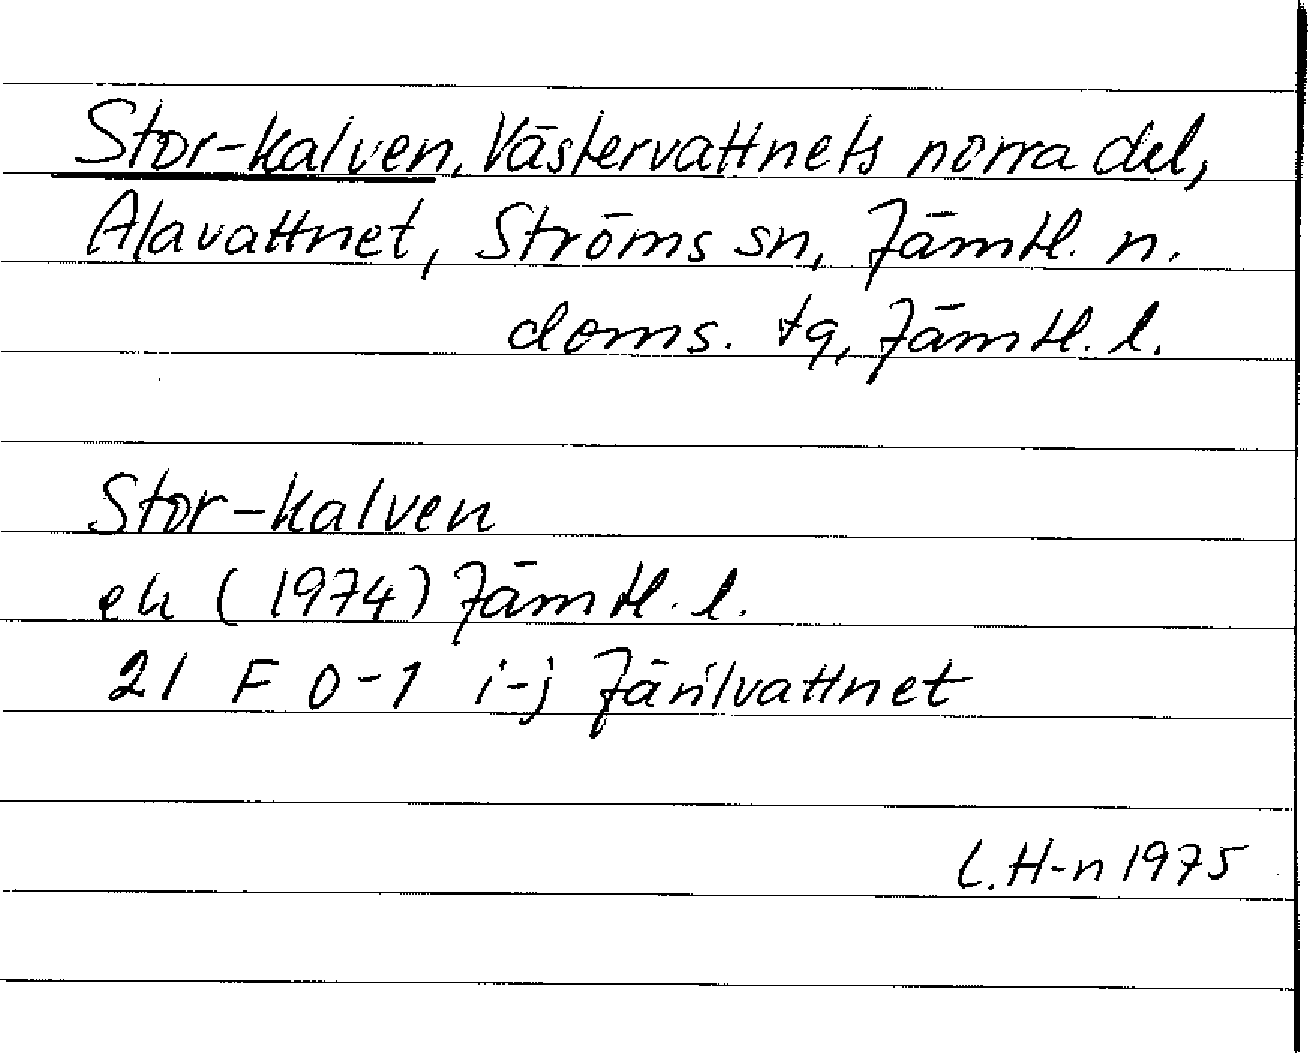 Stor-Kalven, Västervattnets norra del,
Alavattnet, Ströms sn, Jämtl. n.
doms. tg, Jämtl. l.
Stor-Kalven
ek (1974) Jämtl. l.
21 F 0-1 i-j Järilvattnet
L.H-n 1975